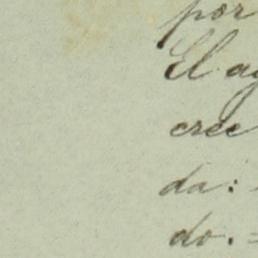 por
El ag
cree
da: -
do. =